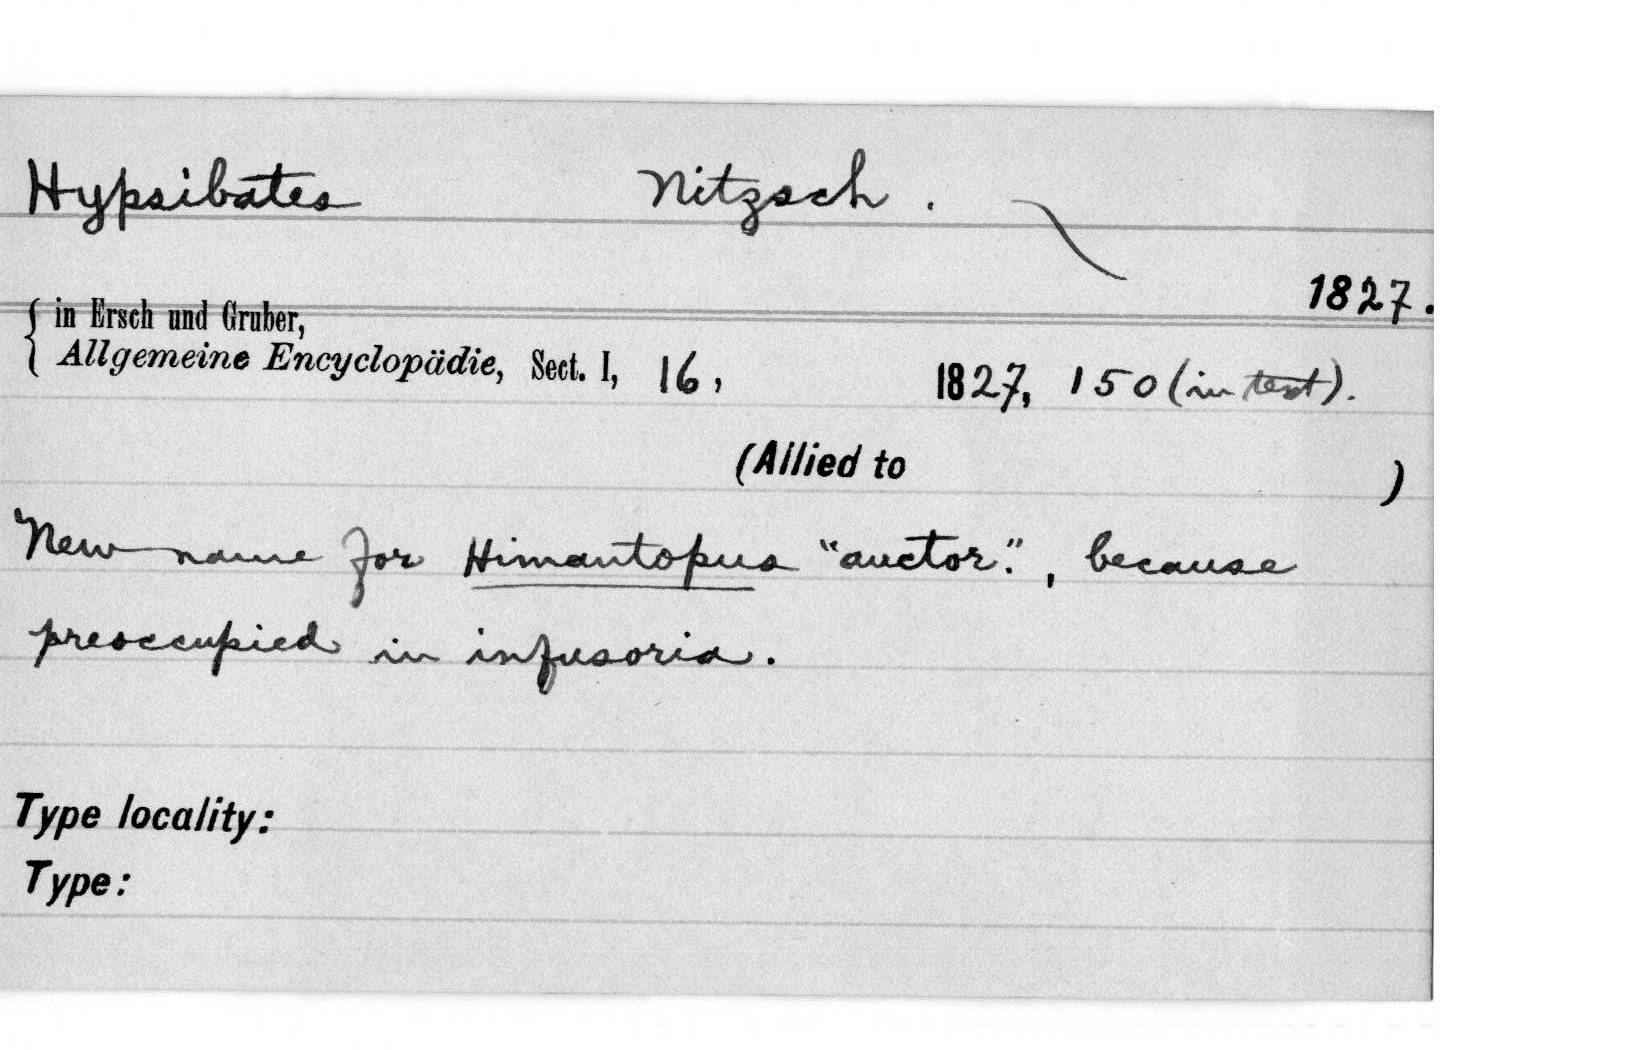 Hypsibates Nitzsch.
1827.
{ in Ersch und Gruber,
Allgemeine Encyclopädie, Sect. I, 16, 1827, 150 (in text).
(Allied to )
New name for Himantopus "auctor.", because
preoccupied in infusoria.
Type locality:
Type: